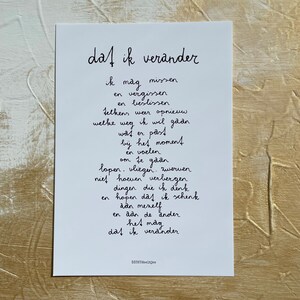 dat ik verander
ik mag missen
en vergissen
en beslissen
telkens weer opnieuw
welke weg ik wil gaan
wat er past
bij het moment
en voelen
om te gaan
lopen, vliegen, zweven
niet hoeven verbergen
dingen die ik denk
en hopen dat ik schenk
aan mezelf
en aan de ander
het mag
dat ik verander